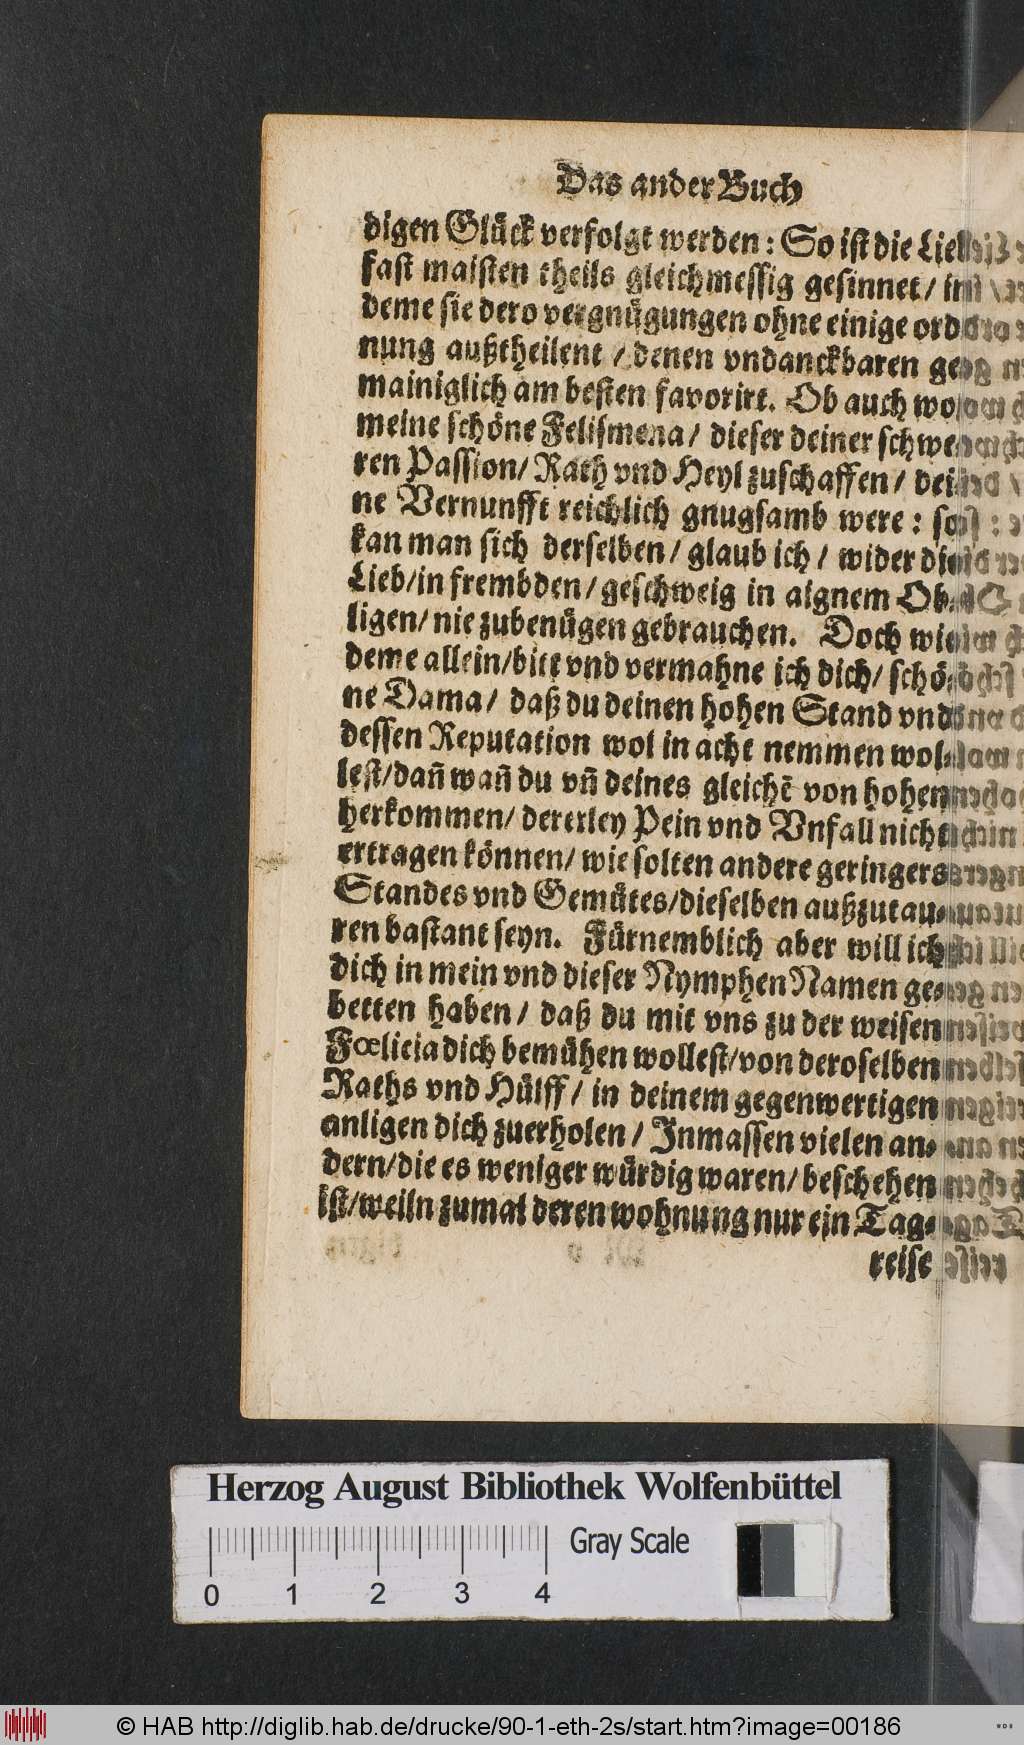 Das ander Buch
digen Glück verfolgt werden: So ist die Lieb
fast maisten theils gleichmessig gesinnet/ in
deme sie dero vergnügungen ohne einige ord⸗
nung außtheilent / denen vndanckbaren ge⸗
mainiglich am besten favorirt. Ob auch wol
meine schöne Felismena/ dieser deiner schwe⸗
ren Passion/ Rath vnd Heyl zuschaffen/ dei⸗
ne Vernunfft reichlich gnugsamb were: so
kan man sich derselben/ glaub ich/ wider die
Lieb/in frembden/ geschweig in aignem Ob⸗
ligen/ nie zubenügen gebrauchen. Doch wie
deme allein/bitt vnd vermahne ich dich/ schö⸗
ne Dama/ daß du deinen hohen Stand vnd
dessen Reputation wol in acht nemmen wol⸗
lest/dañ wañ du vñ deines gleichē von hohen
herkommen/ dererley Pein vnd Vnfall nicht
ertragen können/ wie solten andere geringers
Standes vnd Gemütes/dieselben außzutau⸗
ren bastant seyn. Fürnemblich aber will ich
dich in mein vnd dieser Nymphen Namen ge⸗
betten haben/ daß du mit vns zu der weisen
Fœlicia dich bemühen wollest/von deroselben
Raths vnd Hülff/ in deinem gegenwertigen
anligen dich zuerholen/ Inmassen vielen an⸗
dern/die es weniger würdig waren/ beschehen
ist/weiln zumal deren wohnung nur ein Tag⸗
reise
Herzog August Bibliothek Wolfenbüttel
Gray Scale
0 1 2 3 4
© HAB http://diglib.hab.de/drucke/90-1-eth-2s/start.htm?image=00186